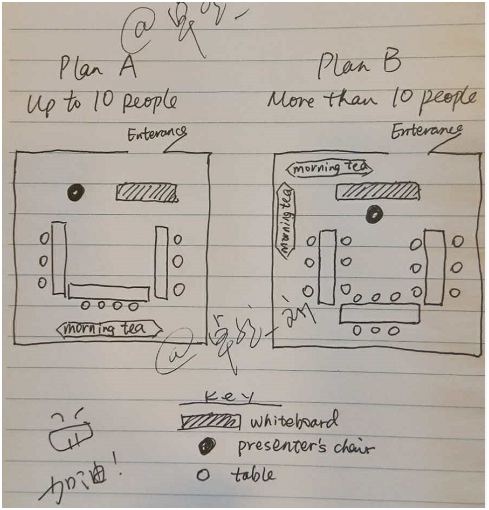 Plan A
Plan B
Up to 10 people
More than 10 people
Enterance
Enterance
morning tea
morning tea
morning tea
Key
whiteboard
presenter's chair
table
加油!